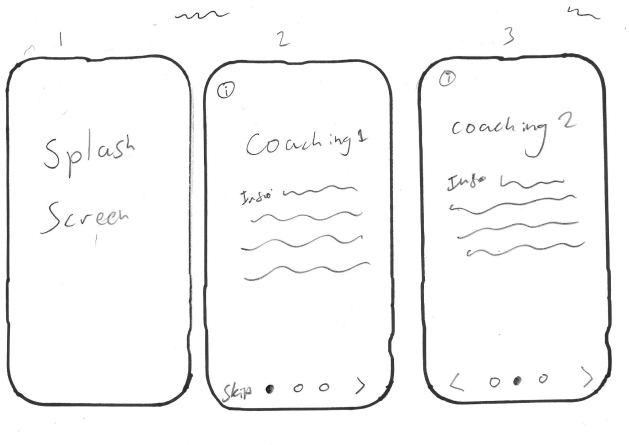 1
2
3
Splash
Screen
i
Coaching 1
Info
Skip
>
i
coaching 2
Info
<
>